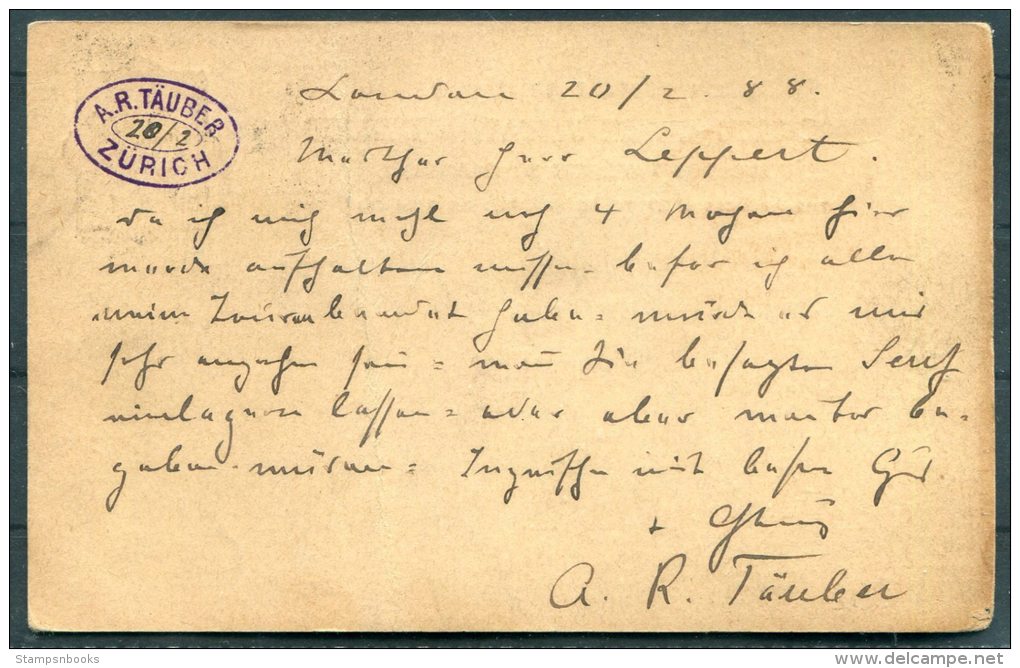 A.R. TÄUBER
20/2
ZÜRICH
London 20/2. 88.
Werther Herr Leppert.
da ich mich noch 4 Wochen hier
werde aufhalten müssen - bevor ich alle
meine haben = würde es mir
sehr angenehm sein = wenn Sie besagten
lassen = oder aber weiter be-
geben würden = Inzwischen mit besten
+
A. R. Täuber
Stampsnbooks
www.delcampe.net